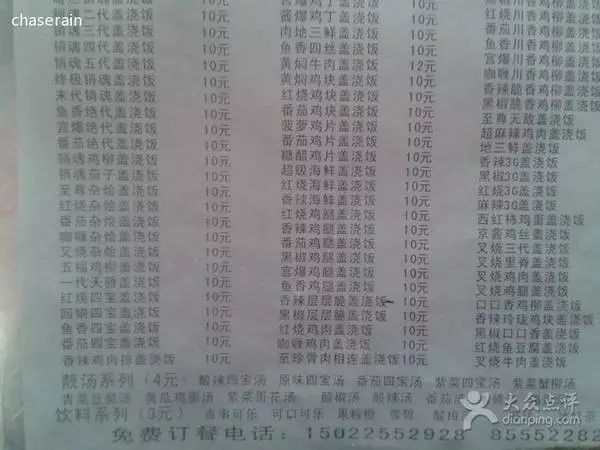 chaserain
销魂二代盖浇饭 10元
销魂三代盖浇饭 10元
销魂四代盖浇饭 10元
销魂五代盖浇饭 10元
终极销魂盖浇饭 10元
末代销魂盖浇饭 10元
鱼香绝代盖浇饭 10元
宫爆绝代盖浇饭 10元
番茄绝代盖浇饭 10元
销魂鸡柳盖浇饭 10元
销魂茄子盖浇饭 10元
至尊杂烩盖浇饭 10元
红烧杂烩盖浇饭 10元
番茄杂烩盖浇饭 10元
咖喱杂烩盖浇饭 10元
叉烧杂烩盖浇饭 10元
五福鸡柳盖浇饭 10元
一代天骄盖浇饭 10元
红烧四宝盖浇饭 10元
回锅四宝盖浇饭 10元
鱼香四宝盖浇饭 10元
番茄四宝盖浇饭 10元
香辣鸡肉排盖浇饭 10元
宫爆鸡丁盖浇饭 10元
酱爆鸡丁盖浇饭 10元
肉地三鲜盖浇饭 10元
鱼香四丝盖浇饭 10元
黄焖牛肉盖浇饭 12元
黄焖鸡块盖浇饭 10元
红烧鸡块盖浇饭 10元
番茄鸡块盖浇饭 10元
菠萝鸡片盖浇饭 10元
番茄鸡片盖浇饭 10元
糖醋鸡片盖浇饭 10元
超级海鲜盖浇饭 10元
红烧海鲜盖浇饭 10元
红烧鸡腿盖浇饭 10元
香辣鸡腿盖浇饭 10元
番茄鸡腿盖浇饭 10元
黑椒鸡腿盖浇饭 10元
宫爆鸡腿盖浇饭 10元
鱼香鸡腿盖浇饭 10元
香辣层层脆盖浇饭 10元
黑椒层层脆盖浇饭 10元
红烧鸡肉盖浇饭 10元
咖喱鸡肉盖浇饭 10元
至珍骨肉相连盖浇饭 10元
黑椒川香鸡柳盖浇饭
红烧川香鸡柳盖浇饭
番茄川香鸡柳盖浇饭
鱼香川香鸡柳盖浇饭
咖喱川香鸡柳盖浇饭
香辣脆香鸡柳盖浇饭
黑椒脆香鸡柳盖浇饭
至尊无敌盖浇饭
超麻辣鸡肉盖浇饭
地三鲜盖浇饭
香辣3G盖浇饭
黑椒3G盖浇饭
红烧3G盖浇饭
麻辣3G盖浇饭
西红柿鸡蛋盖浇饭
京酱鸡丝盖浇饭
叉烧三代盖浇饭
叉烧里脊盖浇饭
叉烧鸡肉盖浇饭
叉烧鸡腿盖浇饭
口口香鸡柳盖浇饭
香辣玲珑鸡块盖浇饭
黑椒口口香盖浇饭
红烧鱼豆腐盖浇饭
叉烧牛肉盖浇饭
靓汤系列（4元） 酸辣四宝汤 原味四宝汤 番茄四宝汤 紫菜四宝汤 紫菜蟹柳汤
青菜豆腐汤 黄瓜鸡蛋汤 紫菜蛋花汤 醋椒汤 酸辣汤
饮料系列（3元） 百事可乐 可口可乐 果粒橙 雪碧
免费订餐电话：15022552928 85552282
大众点评
dianping.com